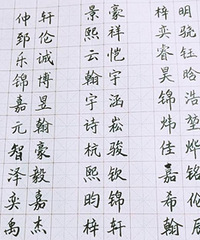 仲轩 景豪 梓明
郅伦 熙祥 奕骁
乐诚 云恺 睿钰
锦博 翰宇 昊焓
嘉昱 宇涵 锦浩
元翰 诗崧 炜堃
智豪 杭骏 佳烨
泽毅 熙钦 嘉铭
奕嘉 昀锦 希伦
禹杰 梓轩 翰辰